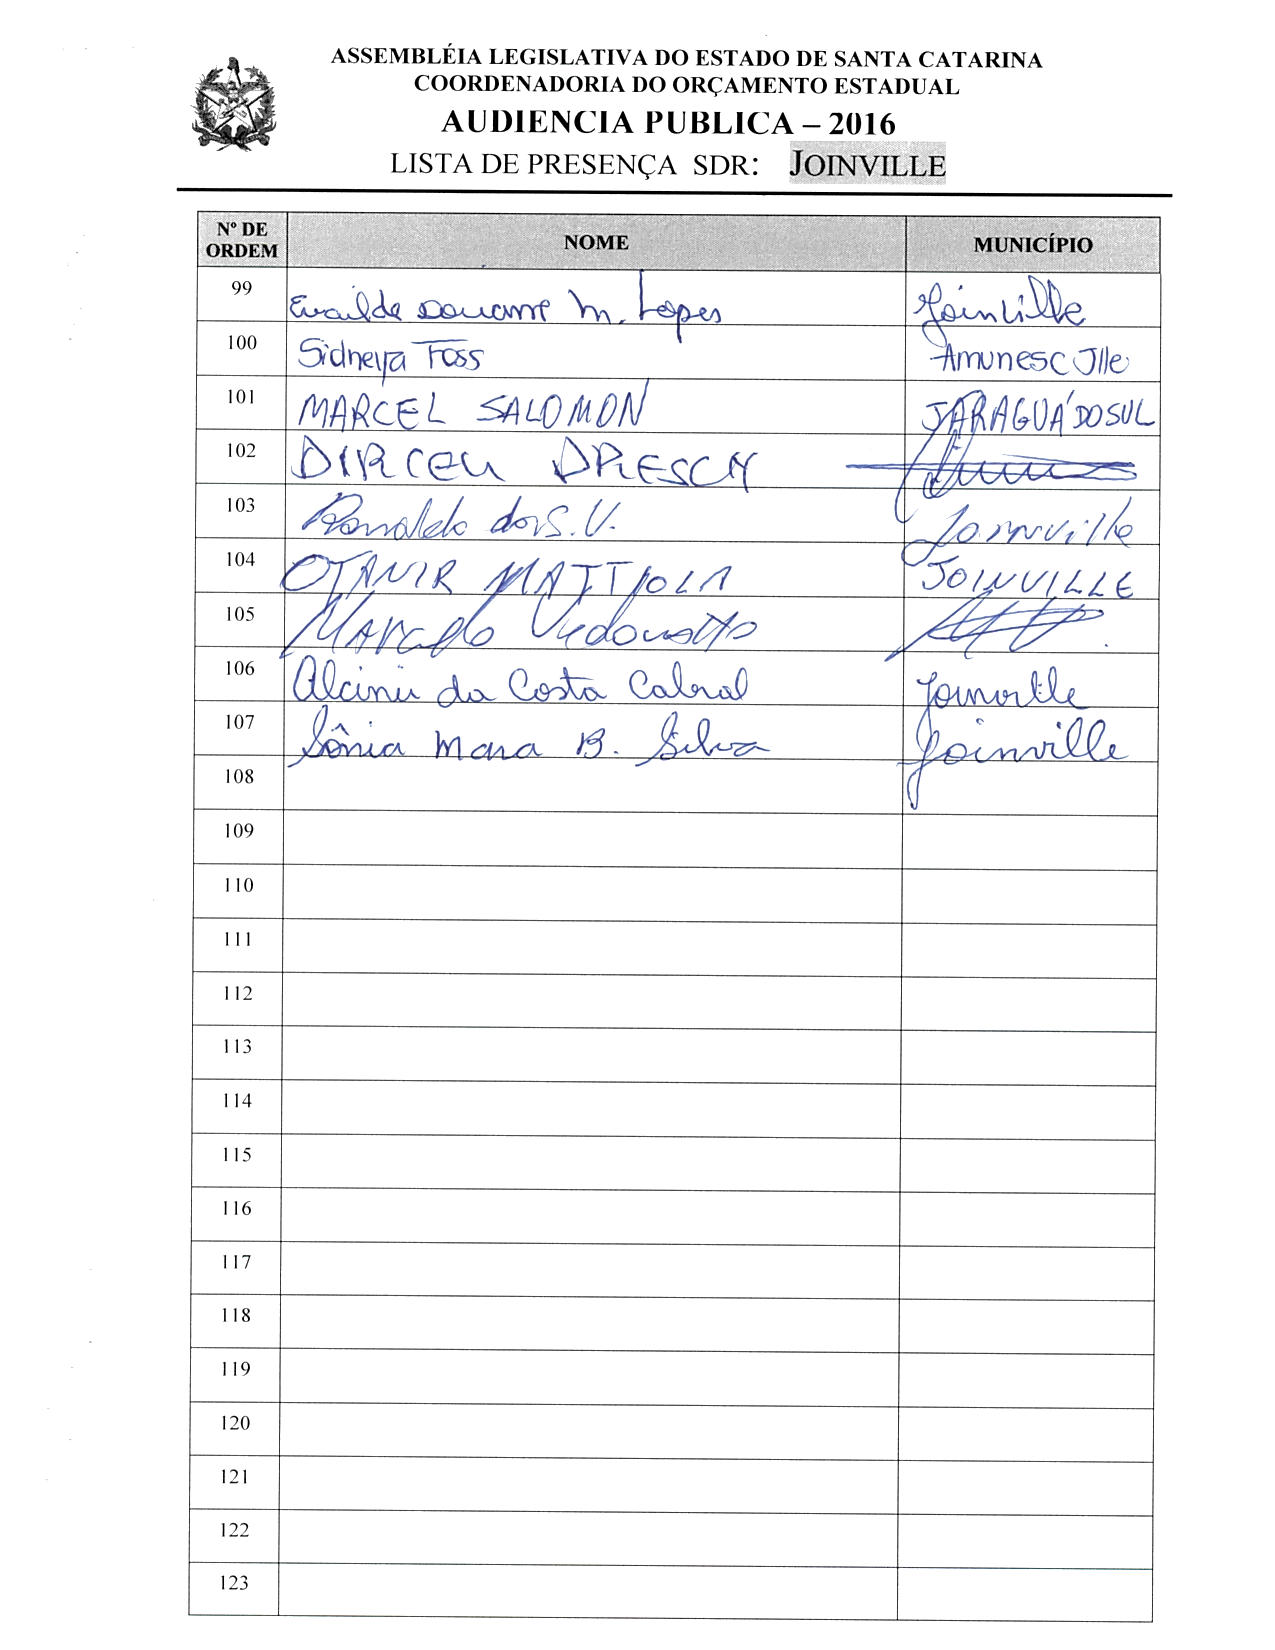 ASSEMBLÉIA LEGISLATIVA DO ESTADO DE SANTA CATARINA
COORDENADORIA DO ORÇAMENTO ESTADUAL
AUDIENCIA PUBLICA – 2016
LISTA DE PRESENÇA SDR: JOINVILLE
Nº DE ORDEM NOME MUNICÍPIO
99 M. Lopes Joinville
100 Sidneya Foss Amunesc Jlle
101 MARCEL SALOMON JARAGUÁ DO SUL
102 DIRCEU DRESCH
103 Ronaldo dos S. V. Joinville
104 OTANIR MATTIOLA JOINVILLE
105 Marcelo
106 da Costa Cabral Joinville
107 Sônia Mara B. Silva Joinville
108
109
110
111
112
113
114
115
116
117
118
119
120
121
122
123